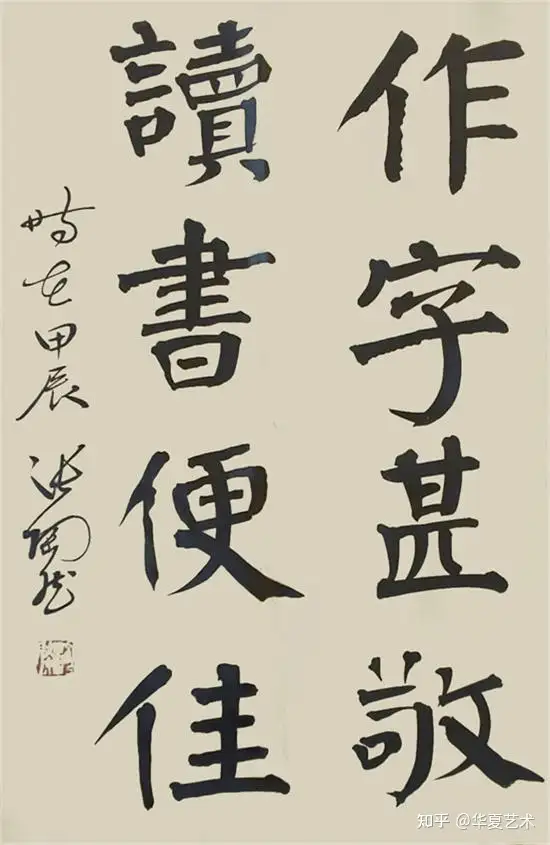 作字甚敬
讀書便佳
時在甲辰 张陶然
知乎 @华夏艺术